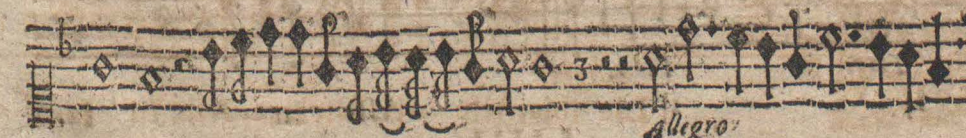 3
allegro